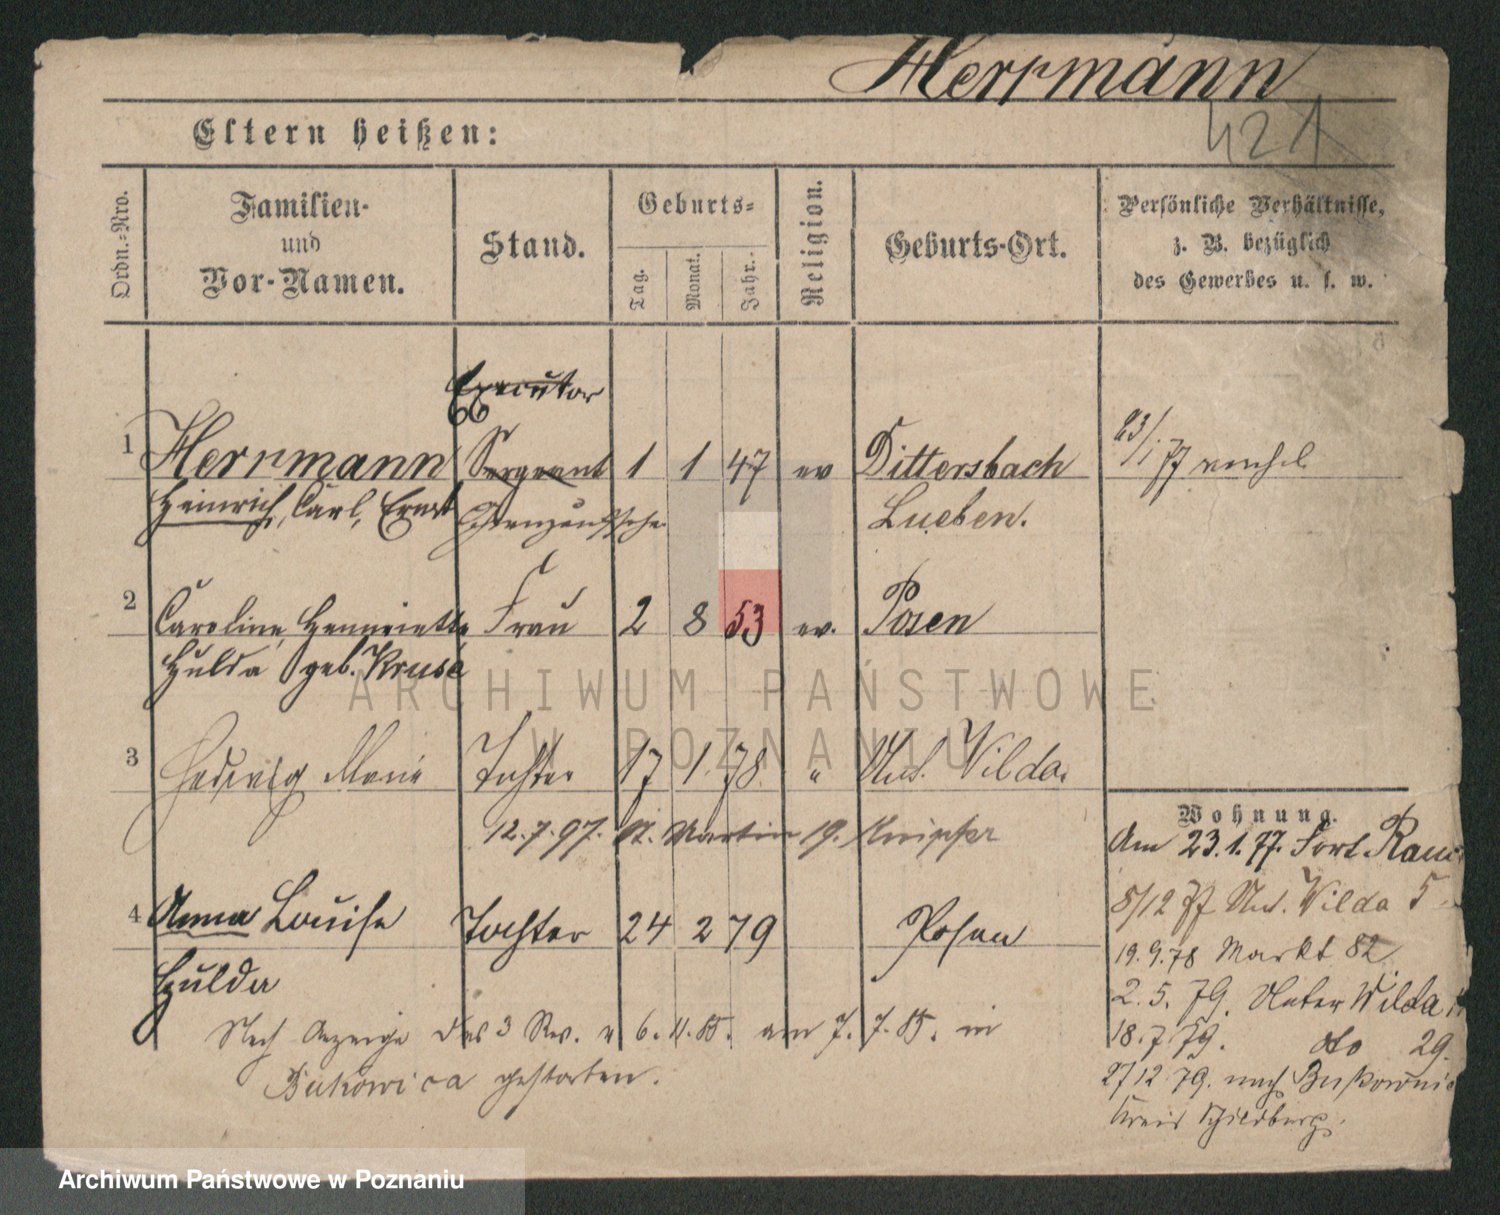 Herrmann
421
Eltern heißen:
Ordn.-Nro.
Familien-
und
Vor-Namen.
Stand.
Geburts-
Tag.
Monat.
Jahr.
Religion.
Geburts-Ort.
Persönliche Verhältnisse,
z. B. bezüglich
des Gewerbes u. s. w.
Executor
1 Herrmann Sergeant 1 1 47 ev Dittersbach 23/1 77
Heinrich, Carl, Ernst Lueben.
2 Caroline, Henriette Frau 2 8 53 ev. Posen
Hulda geb. Kruse
3 Hedwig Marie Tochter 17 1. 78. " Unt. Wilda.
12.7.97. St. Martin 19.
4 Anna Louise Tochter 24 2 79 Posen
Hulda
Nach Anzeige des 3 Rev. v 6. 11. 85. am 7. 7. 85. in
Bukowica gestorben.
Wohnung.
Am 23.1.77. Fort
8/12 77 Unt. Wilda 5
19.9.78 Markt 82
2. 5. 79. Unter Wilda
18.7 79. dto 29.
27 12 79. nach
Kreis Schildberg.
ARCHIWUM PAŃSTWOWE
W POZNANIU
Archiwum Państwowe w Poznaniu